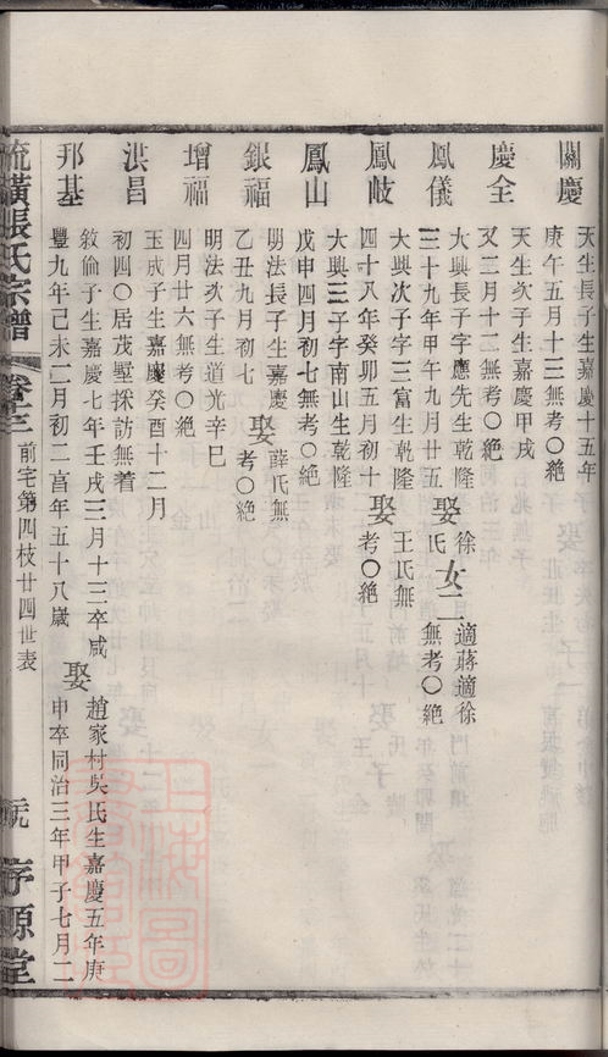 關慶
天生長子生嘉慶十五年
庚午五月十三無考〇絶
慶全
天生次子生嘉慶甲戌
又二月十二無考〇絶
鳳儀
大興長子字應先生乾隆
三十九年甲午九月廿五
娶
徐
氏
女二
適蔣適徐
無考〇絶
鳳岐
大興次子字三富生乾隆
四十八年癸卯五月初十
娶
王氏無
考〇絶
鳳山
大興三子字南山生乾隆
戊申四月初七無考〇絶
銀福
明法長子生嘉慶
乙丑九月初七
娶
薛氏無
考〇絶
增福
明法次子生道光辛巳
四月廿六無考〇絶
洪昌
玉成子生嘉慶癸酉十二月
初四〇居茂墅採訪無着
邦基
敘倫子生嘉慶七年壬戌三月十三卒咸
豐九年己未二月初二亯年五十八歲
娶
趙家村吳氏生嘉慶五年庚
申卒同治三年甲子七月二
流璜張氏宗譜
卷十三
前宅第四枝廿四世表
存源堂
上海圖